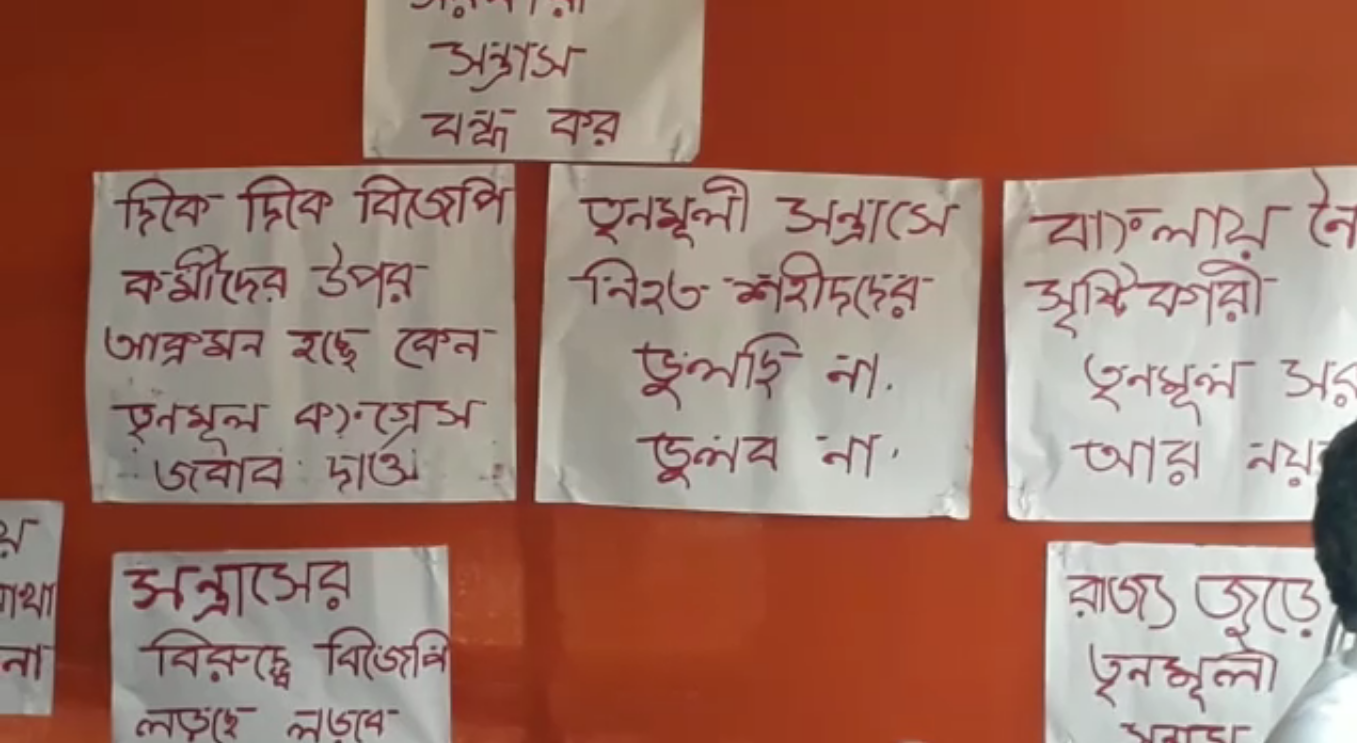 সন্ত্রাস
বন্ধ কর
দিকে দিকে বিজেপি
কর্মীদের উপর
আক্রমন হচ্ছে কেন
তৃনমূল কংগ্রেস
জবাব দাও
তৃনমূলী সন্ত্রাসে
নিহত শহীদদের
ভুলছি না.
ভুলব না.
বাংলায় নৈ
সৃষ্টিকারী
তৃনমূল সর
আর নয়
না
সন্ত্রাসের
বিরুদ্ধে বিজেপি
লড়ছে লড়বে
রাজ্য জুড়ে
তৃনমূলী